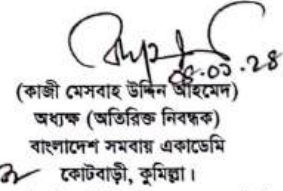 ০৪.০১.২৪
(কাজী মেসবাহ উদ্দিন আহমেদ)
অধ্যক্ষ (অতিরিক্ত নিবন্ধক)
বাংলাদেশ সমবায় একাডেমি
কোটবাড়ী, কুমিল্লা।